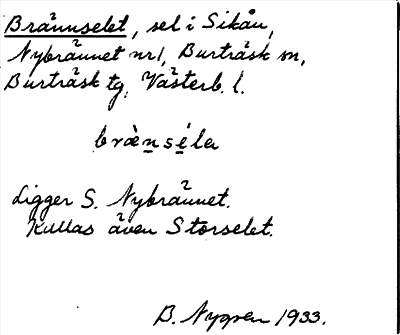 Brännselet, sel i Sikån,
Nybrännet nr 1, Burträsk sn,
Burträsk tg, Västerb. l.
brænséla
Ligger S. Nybrännet.
Kallas även Storselet.
B. Nygren 1933.